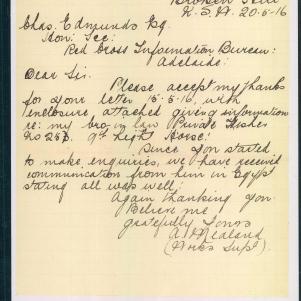 Broken Hill
N.S.W. 20-5-16
Chas. Edmunds Esq.
Hon: Sec:
Red Cross Information Bureau:
Adelaide:
Dear Sir.
Please accept my thanks
for your letter 15-5-16, with
enclosure attached giving information
re: my bro in law Private Fisher
No 258. 9th Light Horse:
Since you started
to make enquiries, we have received
communication from him in Egypt
stating all was well:
Again thanking you
Believe me
gratefully Yours
A.
(Mines Supt).